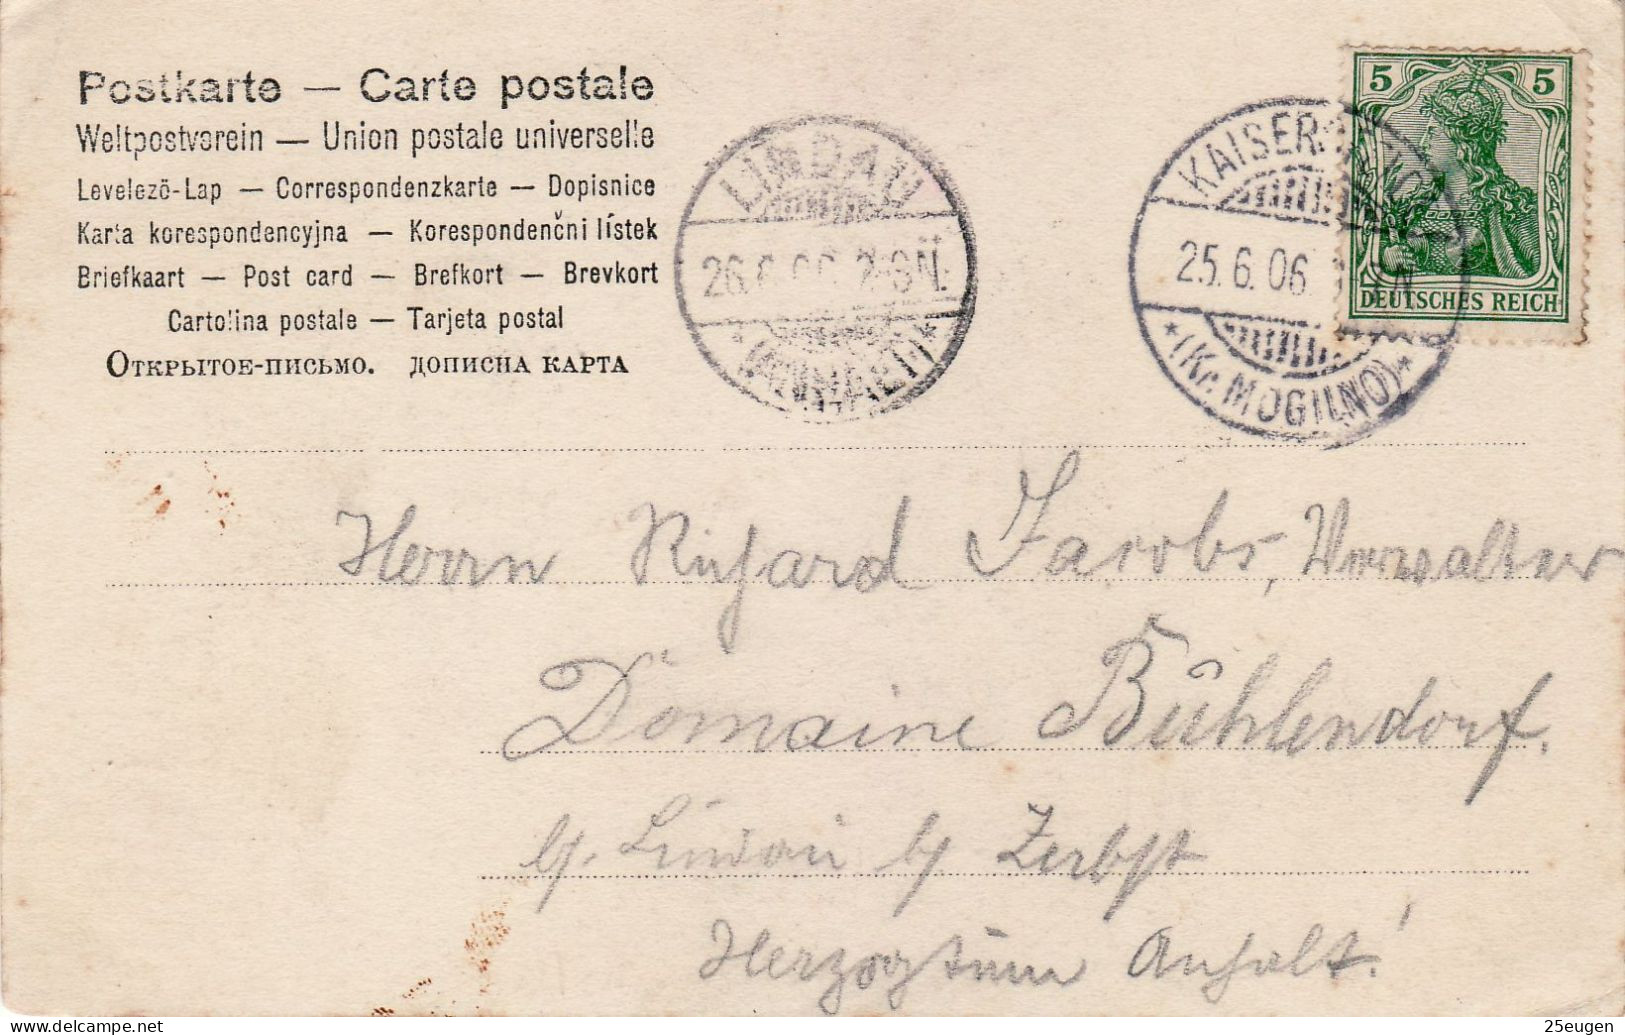 Postkarte — Carte postale
Weltpostverein — Union postale universelle
Levelező-Lap — Correspondenzkarte — Dopisnice
Karta korespondencyjna — Korespondenční lístek
Briefkaart — Post card — Brefkort — Brevkort
Cartolina postale — Tarjeta postal
Открытое-письмо. дописна карта
LINDAU
26.6.06. 2-3N.
*(ANHALT)*
KAISER
25.6.06 N
*(Kr. MOGILNO)*
5 5
DEUTSCHES REICH
Herrn Richard Jacobs, Verwalter
Domaine Bühlendorf.
b/. Lindau b/ Zerbst
Herzogtum Anhalt!
25eugen